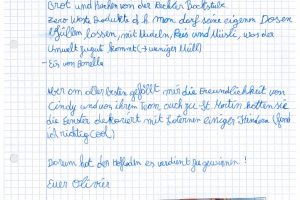 Brot und Kuchen von der Backstube
Zero Waste Produkte d.h man darf seine eigenen Dosen
füllen lassen, mit Nudeln, Reis und Müsli, was der
Umwelt zugute kommt (→ weniger Müll)
- Eis von Bonella
Aber am aller besten gefällt mir die Freundlichkeit von
Cindy und von ihrem Team, auch zu St. Martin hatten sie
die Fenster dekoriert mit Laternen einiger Kinder (fand
ich richtig cool)
Darum hat der Hofladen es verdient zu gewinnen!
Euer Olivier